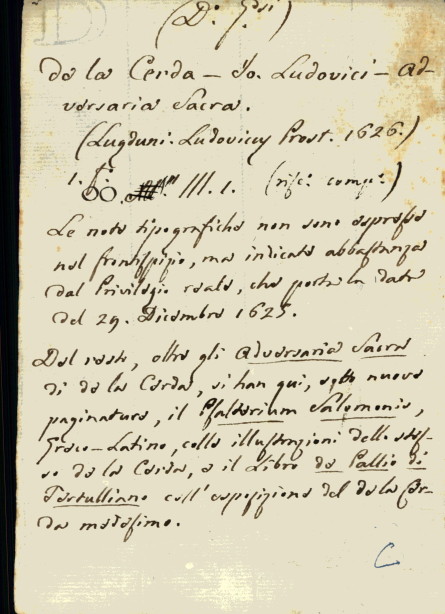 (D. Gesì)
de la Cerda – Jo. Ludovici – Ad-
versaria Sacra.
(Lugduni. Ludovicus Prost. 1626.)
1. f.
OO. III. 1. (rifc. comp.)
Le note tipografiche non sono espresse
nel frontispizio, ma indicate abbastanza
dal Privilegio reale, che porta la data
del 29. Dicembre 1625.
Del resto, oltre gli Adversaria Sacra
di de la Cerda, si han qui, sotto nuova
paginatura, il Psalterium Salomonis,
Greco-Latino, colle illustrazioni dello stes-
so de la Cerda, e il Libro de Pallio di
Tertulliano coll'esposizione del de la Cer-
da medesimo.
C